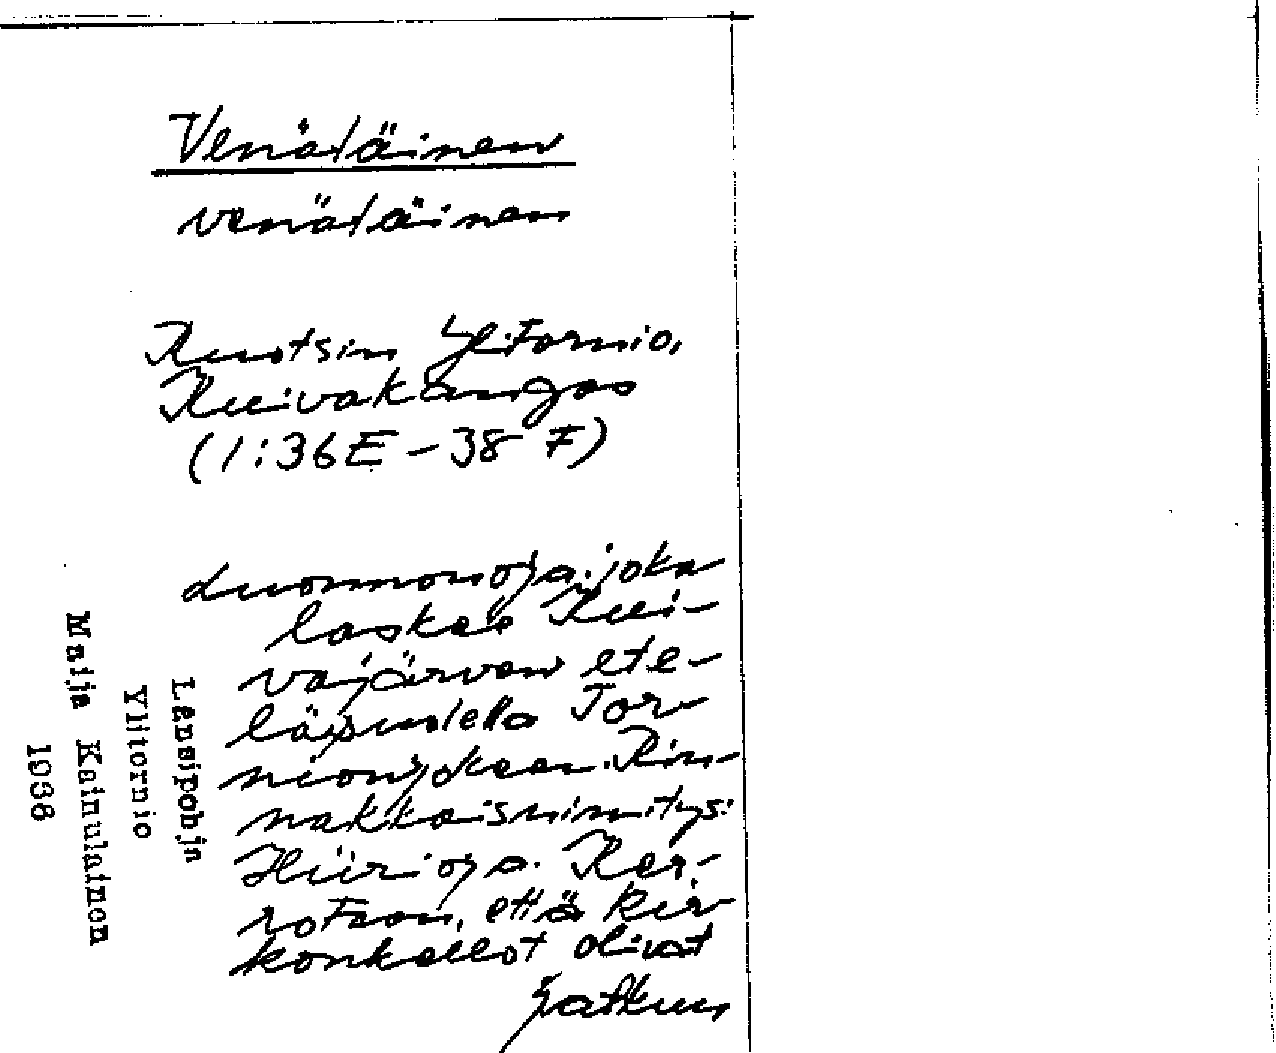 Venäläinen
venäläinen
Ruotsin Ylitornio,
Kuivakangas
(1:36E - 38 F)
Luonnonoja, joka
laskee Kui-
vajärven ete-
läpuolella Tor-
nionjokeen. Rin-
nakkaisnimitys:
Hiirioja. Ker-
rotaan, että kir-
konkellot olivat
Jatkuu
Länsipohja
Ylitornio
Maija Kainulainen
1968